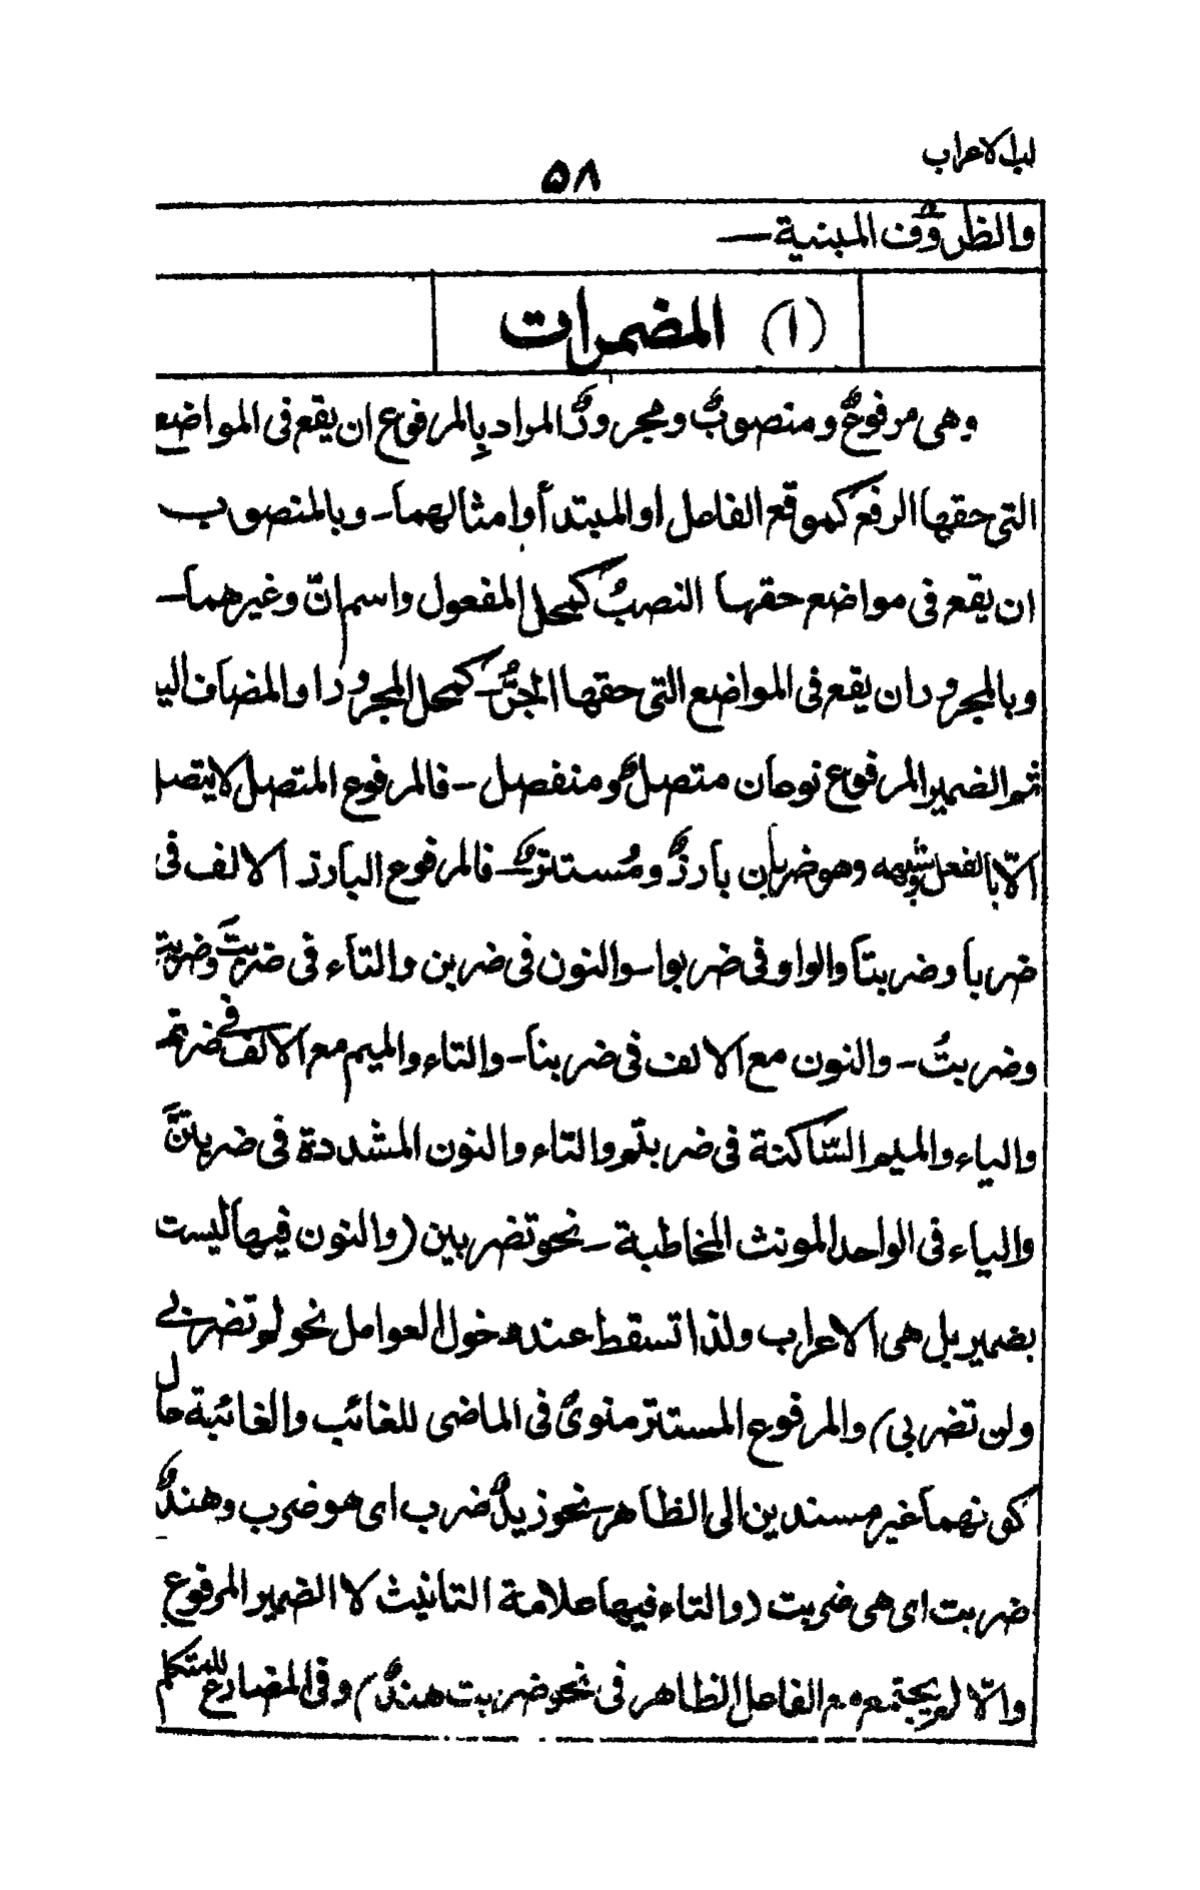 لباب الاعراب
۵۸
والظروف المبنية —
(١) المضمرات
وهى مرفوعٌ ومنصوبٌ ومجرورٌ المراد بالمرفوع ان يقع فى المواضع
التى حقها الرفع كموقع الفاعل او المبتدأ او امثالهما - وبالمنصوب
ان يقع فى مواضع حقها النصبُ كمحل المفعول واسم انّ وغيرهما -
وبالمجرور ان يقع فى المواضع التى حقها الجرُّ - كمحل المجرور او المضاف اليه
ثم الضمير المرفوع نوعان متصلٌ ومنفصل - فالمرفوع المتصل لا يتصل
الّا بالفعل وشبهه وهو ضربان بارزٌ ومُستترٌ - فالمرفوع البارز الالف فى
ضربا وضربتا والواو فى ضربوا - والنون فى ضربن والتاء فى ضربتَ وضربتِ
وضربتُ - والنون مع الالف فى ضربنا - والتاء والميم مع الالف فى ضربتما
والياء والميم السّاكنة فى ضربتم والتاء والنون المشددة فى ضربتنَّ
والياء فى الواحد المونث المخاطبة - نحو تضربين (والنون فيها ليست
بضمير بل هى الاعراب ولذا تسقط عند دخول العوامل نحو لم تضربى
ولن تضربى) والمرفوع المستتر منوىٌ فى الماضى للغائب والغائبة حال
كونهما غير مسندين الى الظاهر - نحو زيدٌ ضرب اى هو ضرب وهندٌ
ضربت اى هى ضربت (والتاء فيها علامة التانيث لا الضمير المرفوع
والّا لم يجتمع مع الفاعل الظاهر فى نحو ضربت هندٌ) وفى المضارع للمتكلم